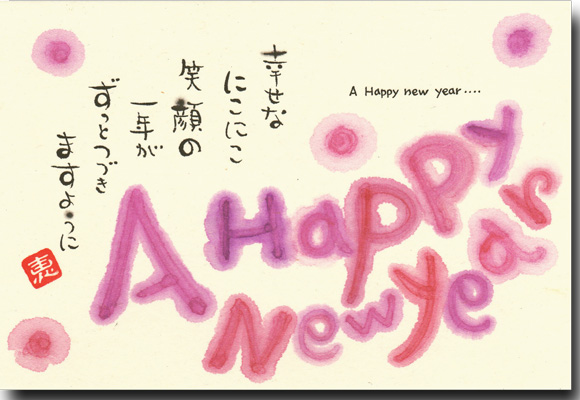 幸せな
にこにこ
笑顔の
一年が
ずっとつづき
ますように
A Happy new year....
A Happy
New Year
恵